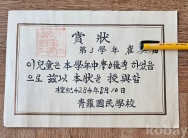 賞狀
第3學年 崔
이兒童은 本學年中學力優秀 하였음
으로 玆以 本狀을 授與함
檀紀4284年8月10日
靑羅國民學校
KoDa